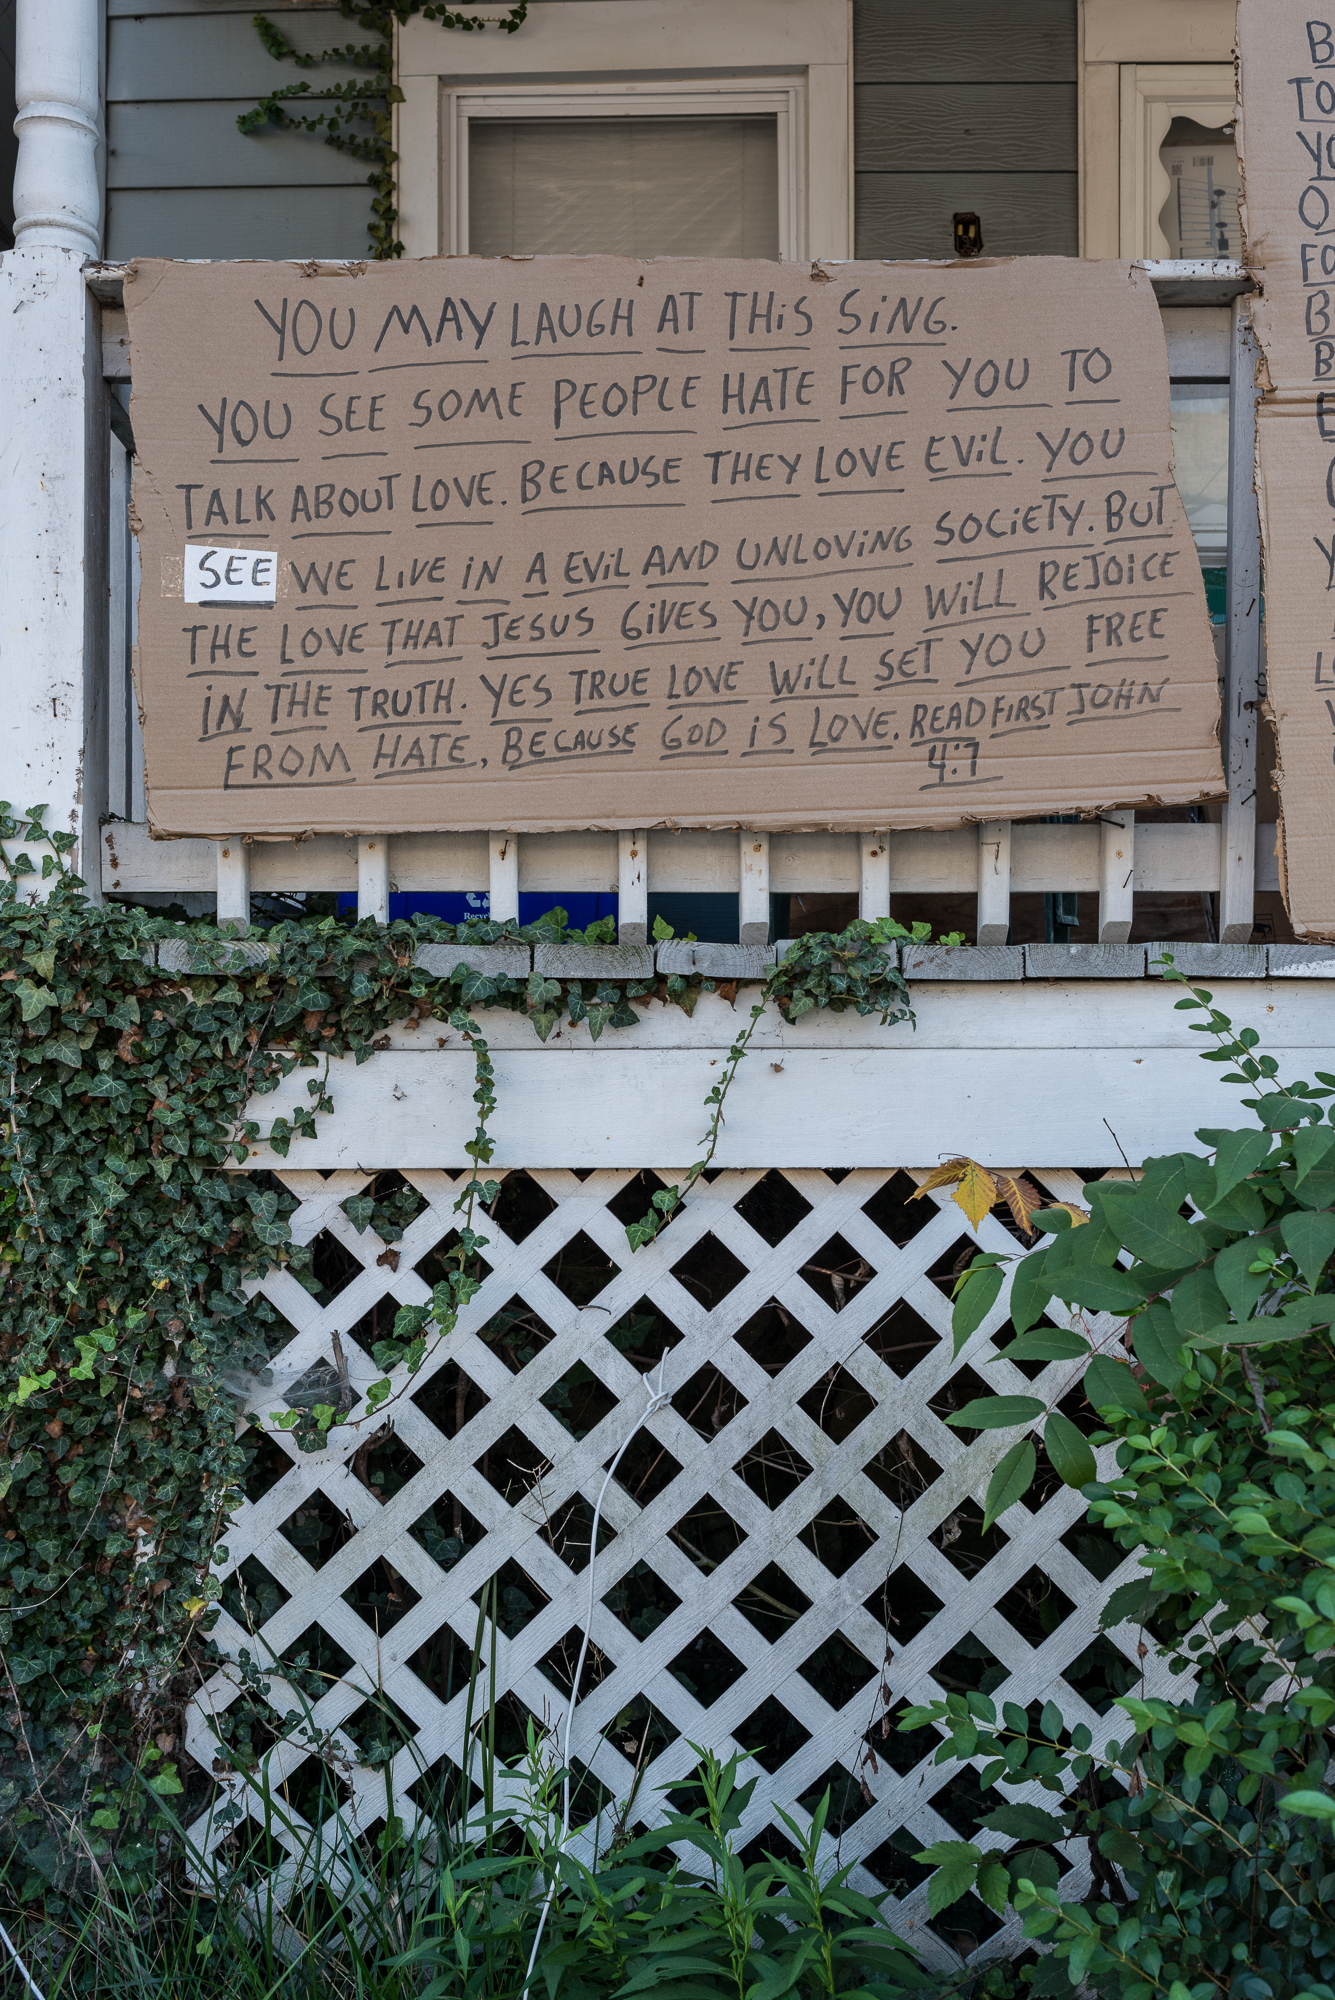 YOU MAY LAUGH AT THIS SING.
YOU SEE SOME PEOPLE HATE FOR YOU TO
TALK ABOUT LOVE. BECAUSE THEY LOVE EVIL. YOU
SEE WE LIVE IN A EVIL AND UNLOVING SOCIETY. BUT
THE LOVE THAT JESUS GIVES YOU, YOU WILL REJOICE
IN THE TRUTH. YES TRUE LOVE WILL SET YOU FREE
FROM HATE, BECAUSE GOD IS LOVE. READ FIRST JOHN
4:7